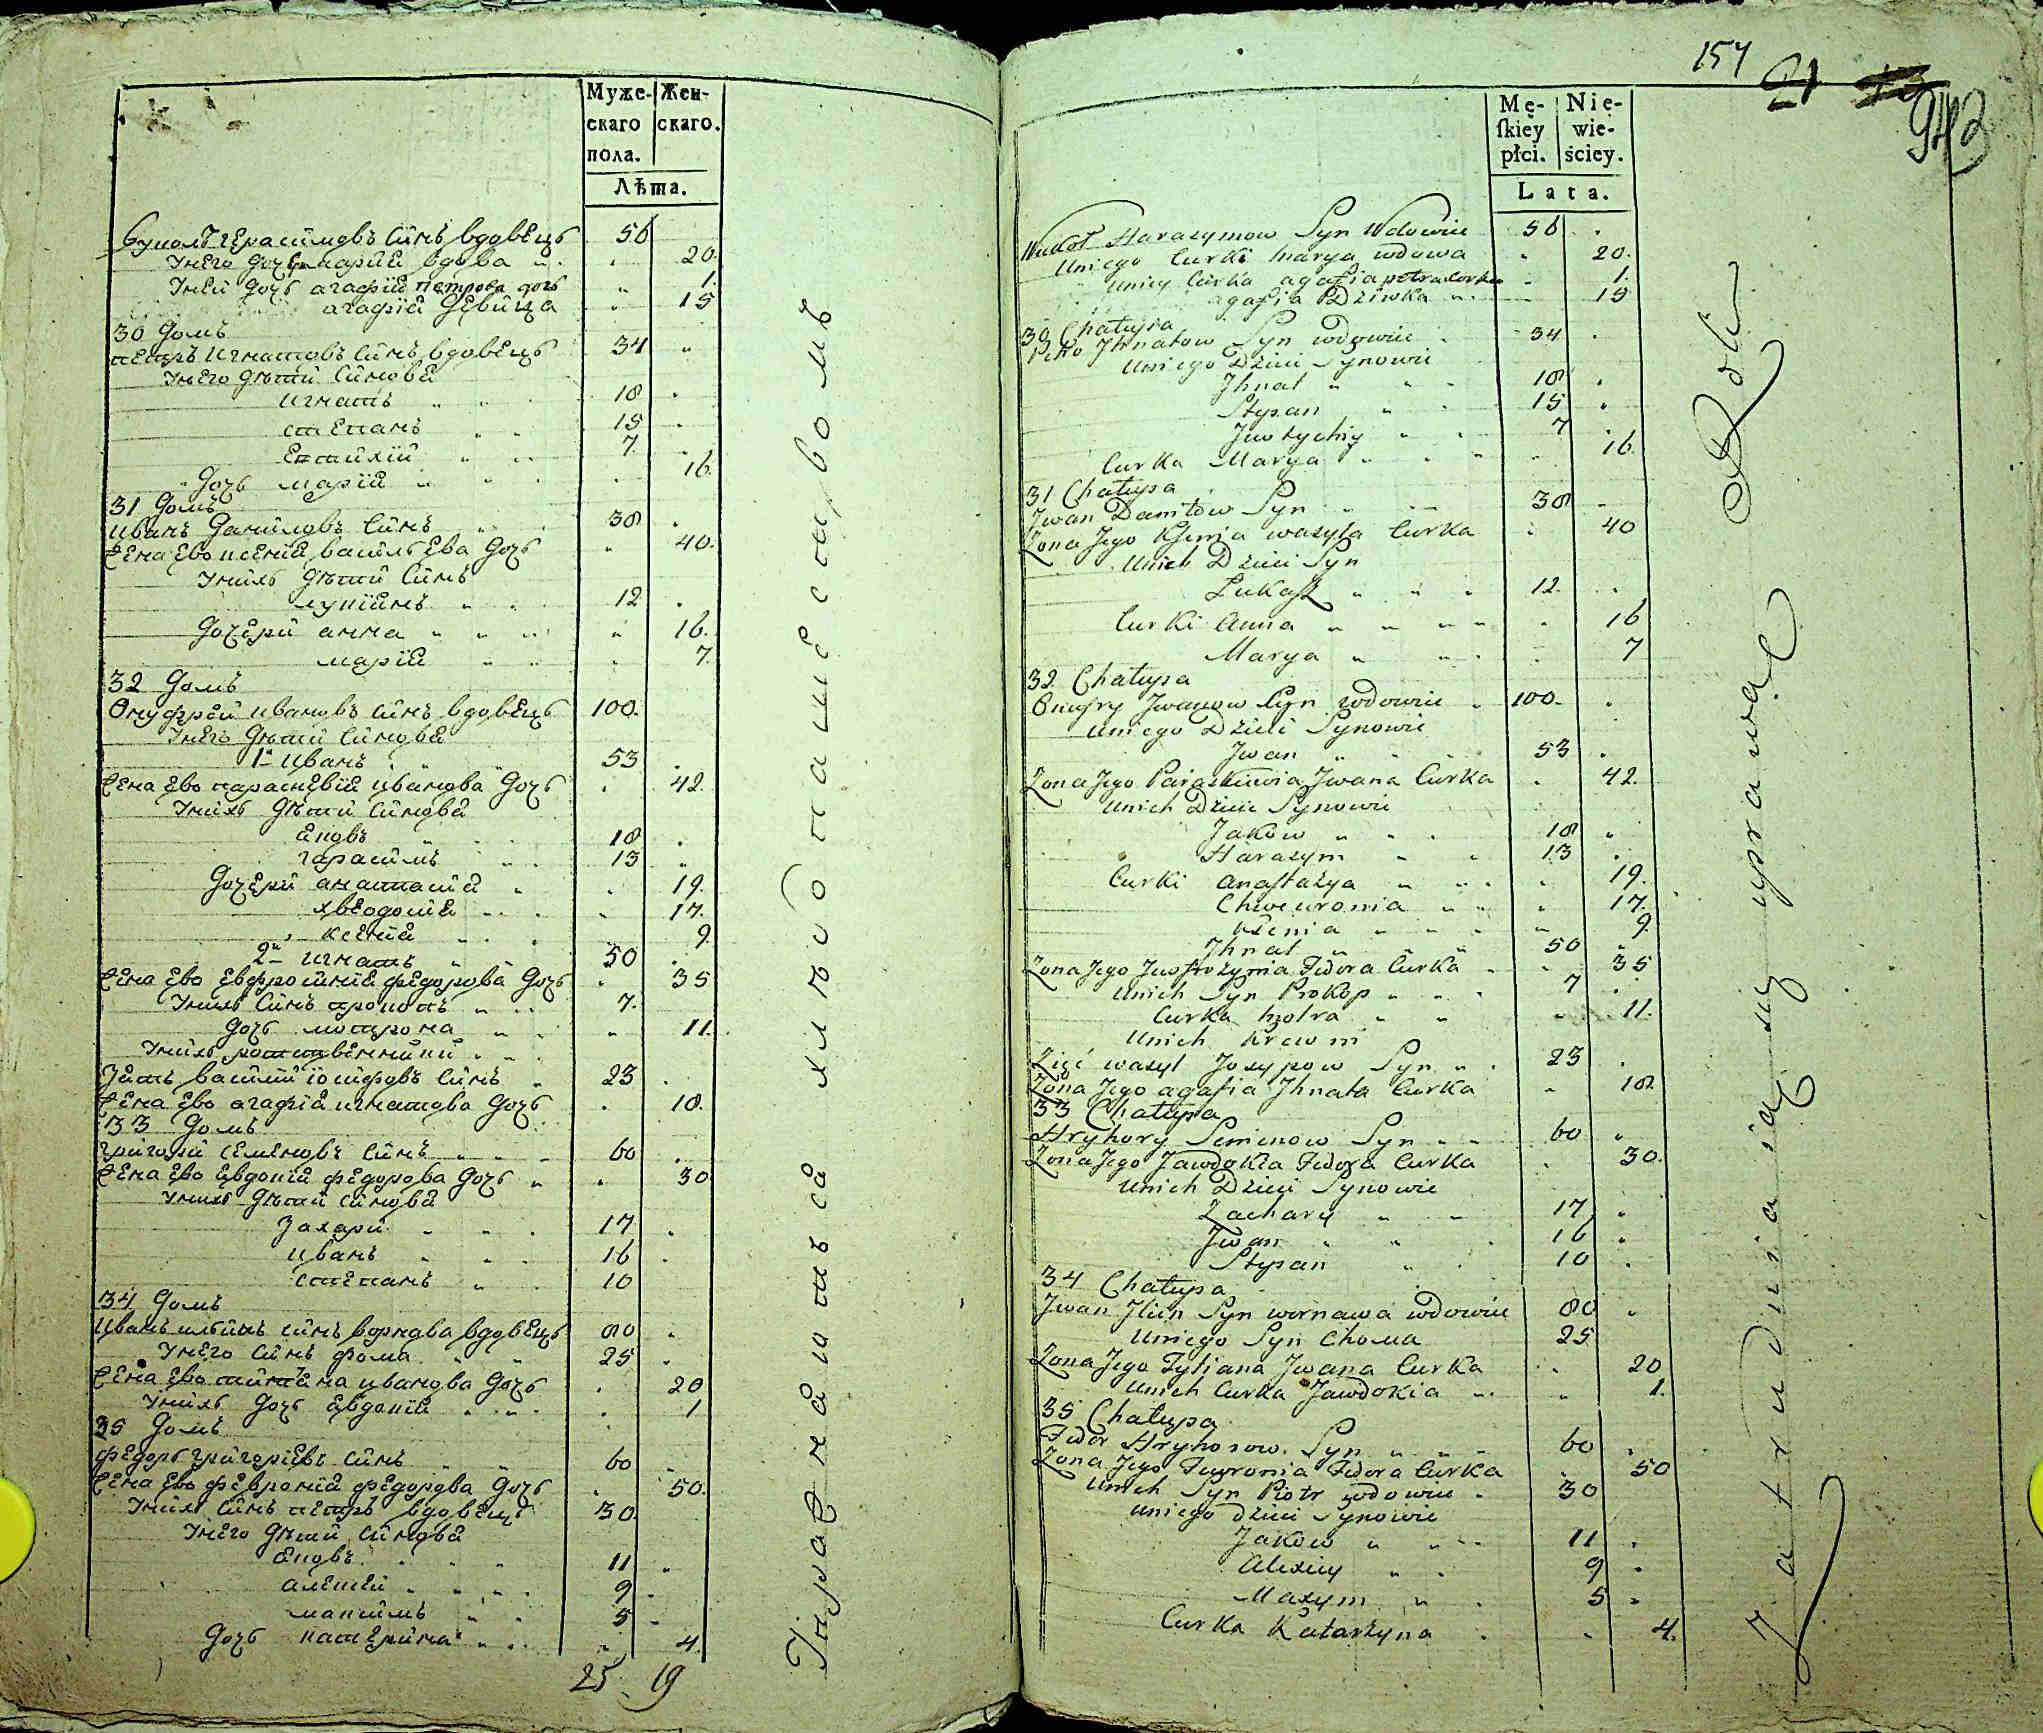 Муже-
скаго
пола.
Жен-
скаго.
Лѣта.
Вуколъ Герасимовъ сынъ вдовецъ 56
У него дочь марія вдова 20.
У ней дочь агафія петрова дочь 1.
агафія девица 15
30 домъ
петръ игнатовъ сынъ вдовецъ 34
У него дѣти синовья
игнатъ 18
степанъ 15
Евтихій 7.
дочь марія 16.
31 домъ
иванъ даниловъ сынъ 38
жена ево ксенія васильева дочь 40.
У нихъ дѣти синъ
лукіянъ 12
дочери анна 16.
марія 7.
32 домъ
Онуфрей ивановъ синъ вдовецъ 100.
У него дѣти синовья
1й иванъ 53
жена ево параскевія иванова дочь 42.
У нихъ дѣти синовья
яковъ 18
гарасимъ 13
дочери анастасія 19.
хвеодосія 17.
ксенія 9.
2й игнатъ 50
жена ево евфросинія федорова дочь 35
У нихъ синъ прокопъ 7.
дочь мотрона 11.
У нихъ родственники
Зять василій іосифовъ синъ 23
жена ево агафія игнатова дочь 18.
33 домъ
григорій семеновъ синъ 60
жена ево евдокія федорова дочь 30
У нихъ дѣти синовья
Захарій 17
иванъ 16
степанъ 10
34 домъ
иванъ ильинъ синъ ворнава вдовецъ 80
У него синъ фома 25
жена ево татіяна иванова дочь 20
У нихъ дочь евдокія 1
35 домъ
федоръ григоріевъ синъ 60
жена ево февронія федорова дочь 50.
У нихъ синъ петръ вдовецъ 30
У него дѣти синовья
яковъ 11
алексей 9
максимъ 5
дочь катерина 4.
25 19
Упражняються хлѣбопашествомъ
154
21
943
Mę-
ſkiéy
płci.
Nie-
wie-
ściey.
Lata.
Wukoł Harazymow Syn Wdowiec 56
Uniego Curki Marya wdowa 20.
Uniey Curka agafia petra Curka 1.
agafia Dziwka 15
30 Chałupa
Petro Jhnatow Syn wdowiec 34
Uniego Dzieci Synowie
Jhnat 18
Stypan 15
Jewtychiy 7
Curka Marya 16
31 Chałupa
Jwan Daniłow Syn 38
Zona Jego Kſenia wasyla Curka 40
Unich Dzieci Syn
Łukaſz 12
Curki Anna 16
Marya 7
32 Chałupa
Onufry Jwanow Syn wdowiec 100.
Uniego Dzieci Synowie
Jwan 53
Zona Jego Paraskiewia Jwana Curka 42.
Unich Dzieci Synowie
Jakow 18
Harazym 13
Curki Anaſtazya 19.
Chwewronia 17.
Kſenia 9.
Jhnat 50
Zona Jego Jewfrozynia Fedora Curka 35
Unich Syn Prokop 7
Curka Motra 11.
Unich Krewni
Zięć wasyl Jozypow Syn 23
Zona Jego agafia Jhnata Curka 18.
33 Chałupa
Hryhory Semenow Syn 60
Zona Jego Jawdokia Fedora Curka 30.
Unich Dzieci Synowie
Zachary 17
Jwan 16
Stypan 10
34 Chałupa
Jwan Jlin Syn wornawa wdowiec 80
Uniego Syn Choma 25
Zona Jego Tytjana Jwana Curka 20
Unich Curka Jawdokia 1.
35 Chałupa
Fedor Hryhorow Syn 60
Zona Jego Fewronia Fedora Curka 50
Unich Syn Piotr wdowiec 30
Uniego dzieci Synowie
Jakow 11
Alexiey 9
Maxym 5
Curka Katarzyna 4.
Zatrudniaią się uprawą Roli